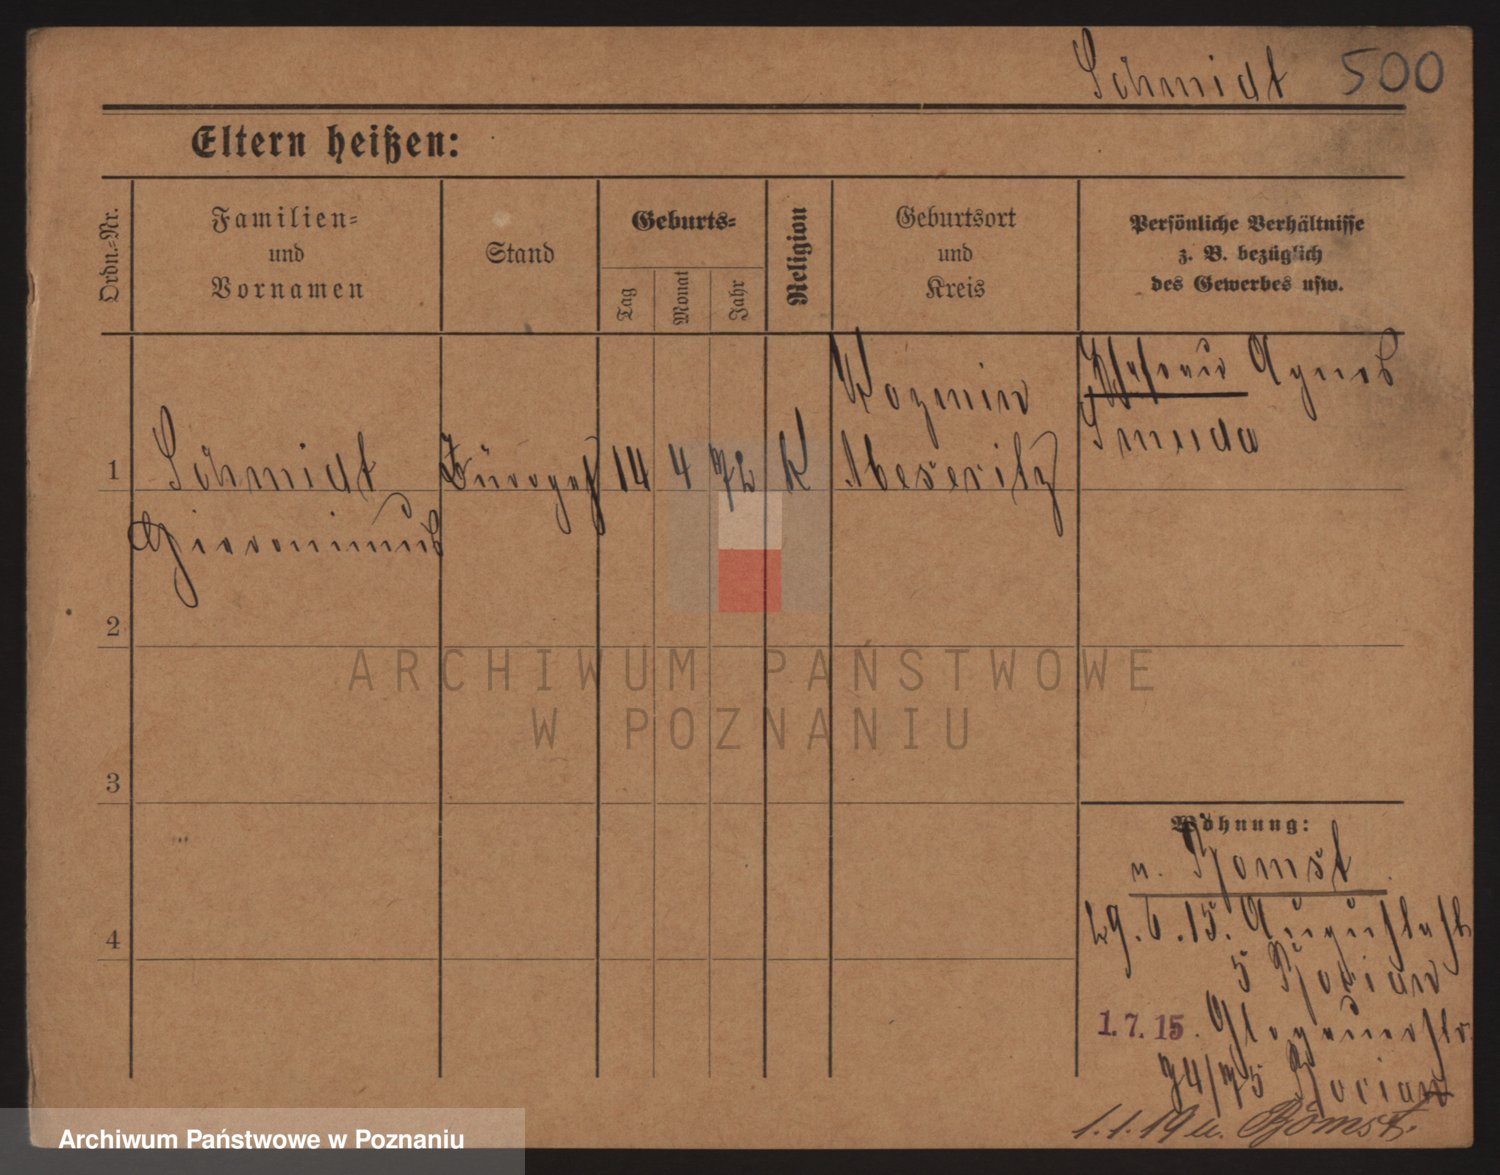 Schmidt 500
Eltern heißen:
Ordn.=Nr.
Familien=
und
Vornamen
Stand
Geburts=
Tag
Monat
Jahr
Religion
Geburtsort
und
Kreis
Persönliche Verhältnisse
z. B. bezüglich
des Gewerbes usw.
1
Schmidt
14 4 72 K
Meseritz
Agnes
Smuda
2
3
4
Wohnung:
n. Bomst
29.6.15. Augustastr
5
1.7.15. Glogauerstr.
74/75
1.1.19 u. Bomst.
ARCHIWUM PAŃSTWOWE
W POZNANIU
Archiwum Państwowe w Poznaniu